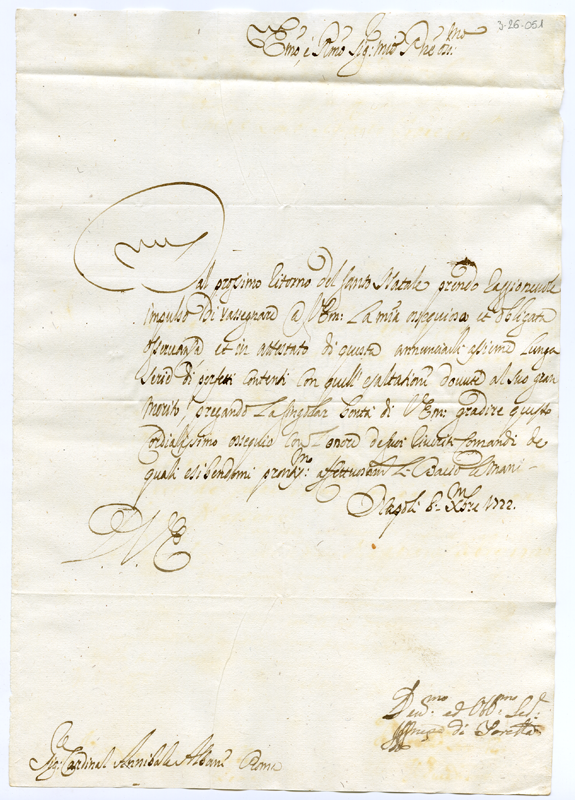 3-26-051
Emo e Rmo Sig: mio Pne Col:mo
al prossimo ritorno del Santo Natale prendo
impulso di rassegnare a V Em: la mia ossequiosa et obligata
osservanza et in attestato di questa annunciarli assieme lunga
serie di perfetti contenti con quell'esaltazioni dovute al suo gran
merito! pregando la singolar bontà di V Em: gradire questo
cordialissimo ossequio con l'onore de suoi comandi de
quali esibendomi affettuosam. Le Bacio le mani -
Napoli 6. Xbre 1722.
V E
Dev:mo ed Obb:mo Ser:
di
Sig: Cardinal Annibale Albani Roma